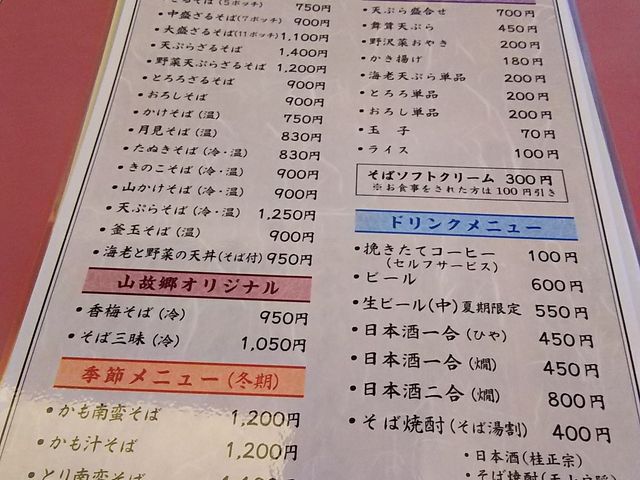 ざるそば(5ボッチ) 750円
・中盛ざるそば(7ボッチ) 900円
・大盛ざるそば(11ボッチ) 1,100円
・天ぷらざるそば 1,400円
・野菜天ぷらざるそば 1,200円
・とろろざるそば 900円
・おろしそば 900円
・かけそば(温) 750円
・月見そば(温) 830円
・たぬきそば(冷・温) 830円
・きのこそば(冷・温) 900円
・山かけそば(冷・温) 900円
・天ぷらそば(冷・温) 1,250円
・釜玉そば(温) 900円
・海老と野菜の天丼(そば付) 950円
山故郷オリジナル
・香梅そば(冷) 950円
・そば三昧(冷) 1,050円
季節メニュー(冬期)
・かも南蛮そば 1,200円
・かも汁そば 1,200円
・とり南蛮そば
・天ぷら盛合せ 700円
・舞茸天ぷら 450円
・野沢菜おやき 200円
・かき揚げ 180円
・海老天ぷら単品 200円
・とろろ単品 200円
・おろし単品 200円
・玉子 70円
・ライス 100円
そばソフトクリーム 300円
※お食事をされた方は100円引き
ドリンクメニュー
・挽きたてコーヒー 100円
(セルフサービス)
・ビール 600円
・生ビール(中)夏期限定 550円
・日本酒一合(ひや) 450円
・日本酒一合(燗) 450円
・日本酒二合(燗) 800円
・そば焼酎(そば湯割) 400円
・日本酒(桂正宗)
・そば焼酎